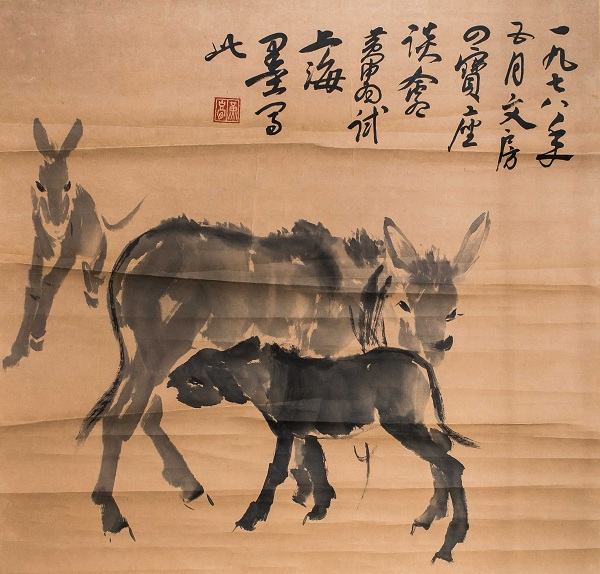 一九七八年
五月文房
四寶座
談會
黄胄試
上海
墨写
此